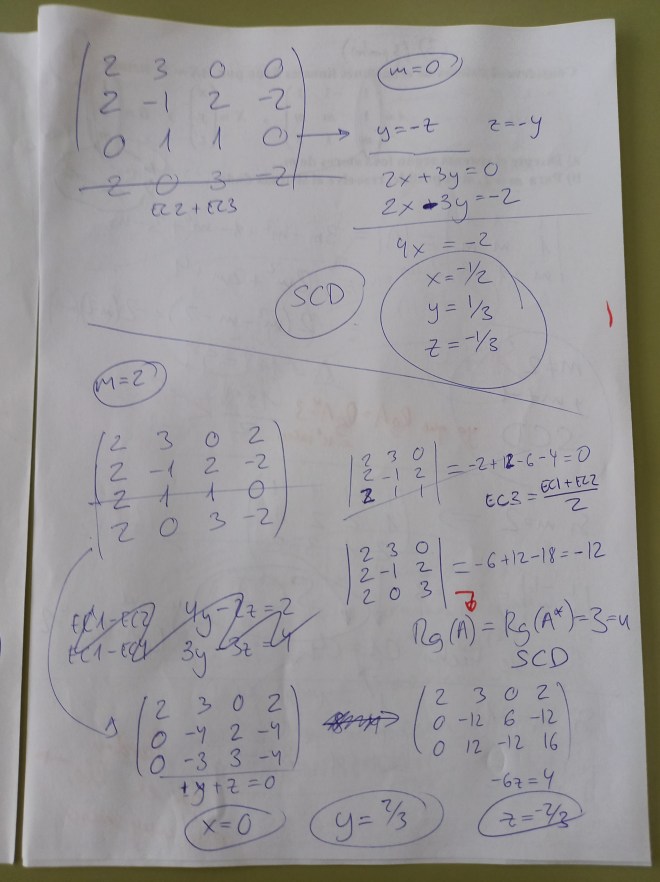 2 3 0 0
2 -1 2 -2
0 1 1 0
2 0 3 -2
EC2 + EC3
m=0
y=-z z=-y
2x+3y=0
2x-3y=-2
4x = -2
x=-1/2
y=1/3
z=-1/3
SCD
m=2
2 3 0 2
2 -1 2 -2
2 1 1 0
2 0 3 -2
2 3 0
2 -1 2
2 1 1
= -2+12-6-4=0
EC3 = EC1+EC2
2
2 3 0
2 -1 2
2 0 3
= -6+12-18=-12
Rg(A) = Rg(A*)=3=n
SCD
EC1-EC2 4y-2z=2
EC1-EC4 3y-3z=4
2 3 0 2
0 -4 2 -4
0 -3 3 -4
+y+z=0
2 3 0 2
0 -12 6 -12
0 12 -12 16
-6z=4
x=0
y=2/3
z=-2/3